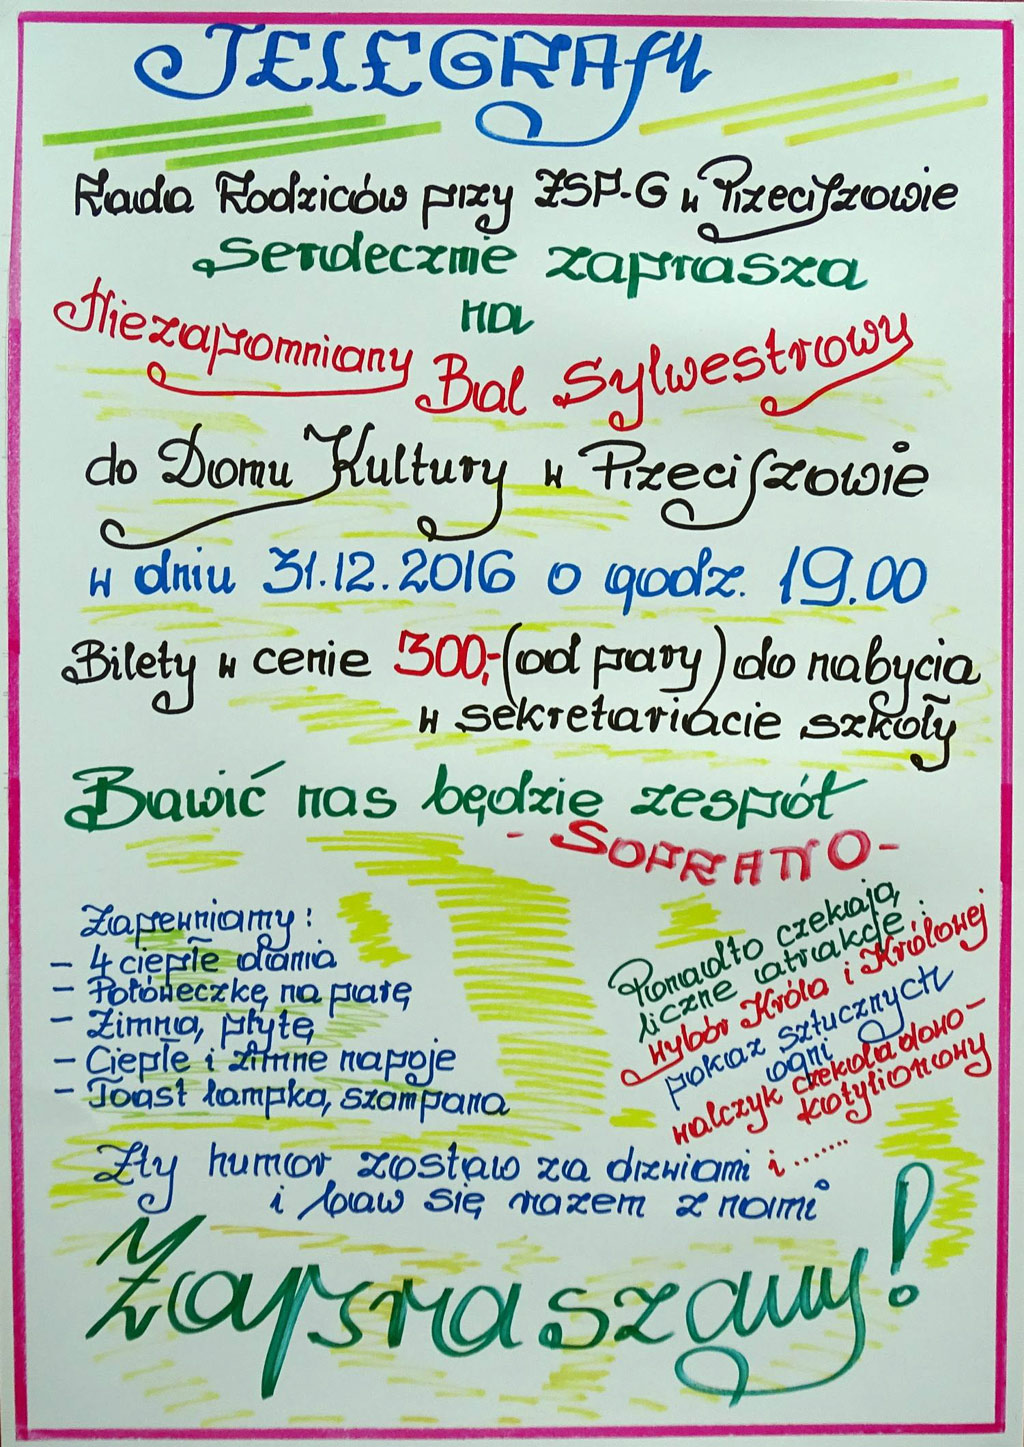 TELEGRAM
Rada Rodziców przy ZSP-G w Przeciszowie
serdecznie zaprasza
na
Niezapomniany Bal Sylwestrowy
do Domu Kultury w Przeciszowie
w dniu 31.12.2016 o godz. 19.00
Bilety w cenie 300,- (od pary) do nabycia
w sekretariacie szkoły
Bawić nas będzie zespół
- SOPRANO -
Zapewniamy:
- 4 ciepłe dania
- Połóweczkę na parę
- Zimną płytę
- Ciepłe i zimne napoje
- Toast lampką szampana
Ponadto czekają
liczne atrakcje:
wybór Króla i Królowej
pokaz sztucznych
ogni
walczyk czekoladowo-
kotylionowy
i .......
Zły humor zostaw za drzwiami
i baw się razem z nami
Zapraszamy!